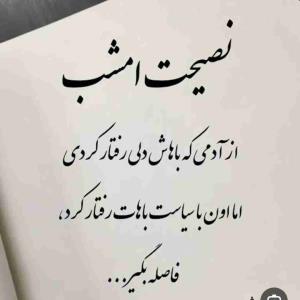 نصیحت امشب
از آدمی که باهاش دلی رفتار کردی
اما اون با سیاست باهات رفتار کرد،
فاصله بگیر...